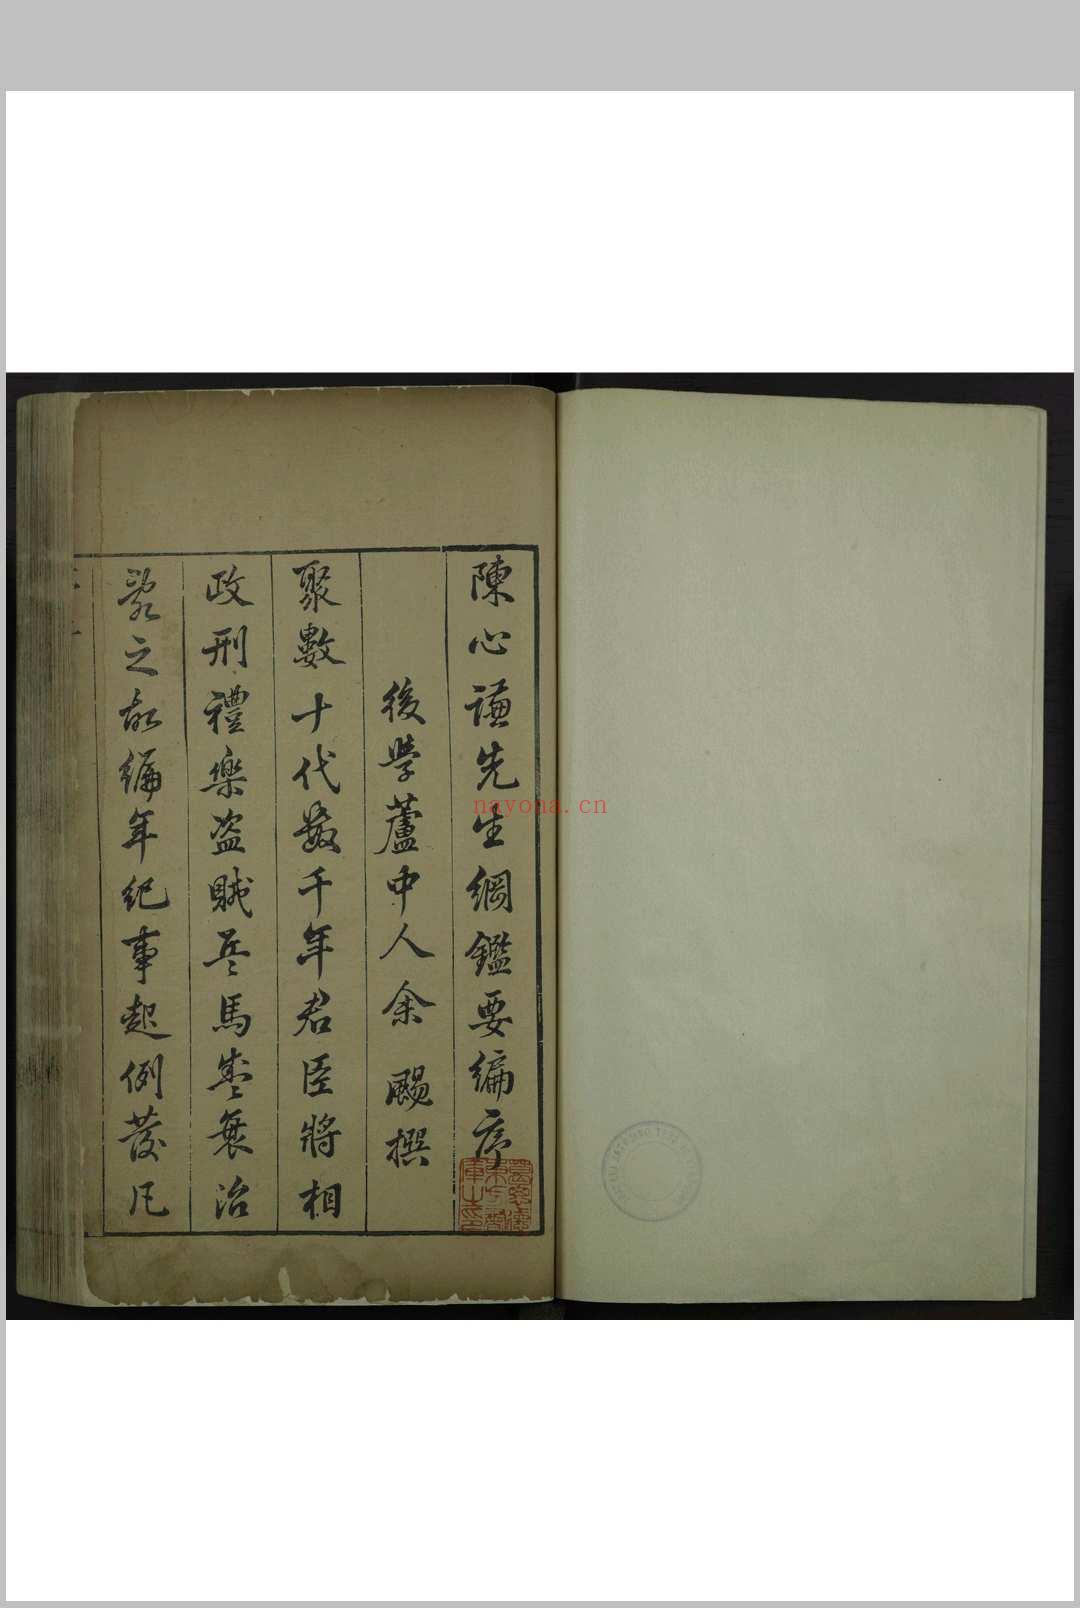 陳心謙先生綱鑑要編序
後學蘆中人余颺撰
聚數十代數千年君臣將相
政刑禮樂盜賊兵馬盛衰治
亂之故編年紀事起例發凡
nayona.cn